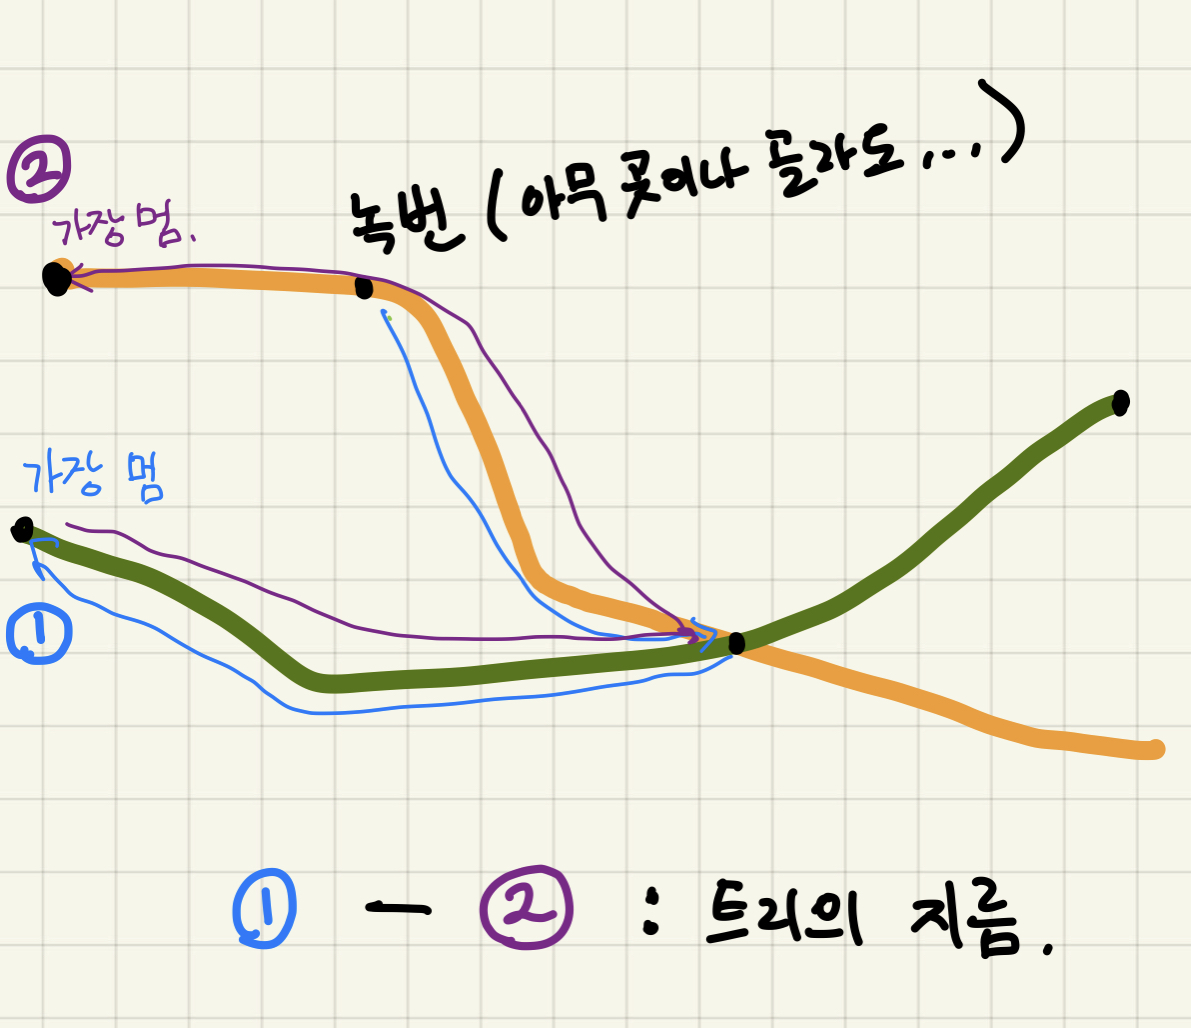 ②
가장 멈.
녹번 (아무 곳이나 골라도...)
가장 멈
①
① - ② : 트리의 지름.